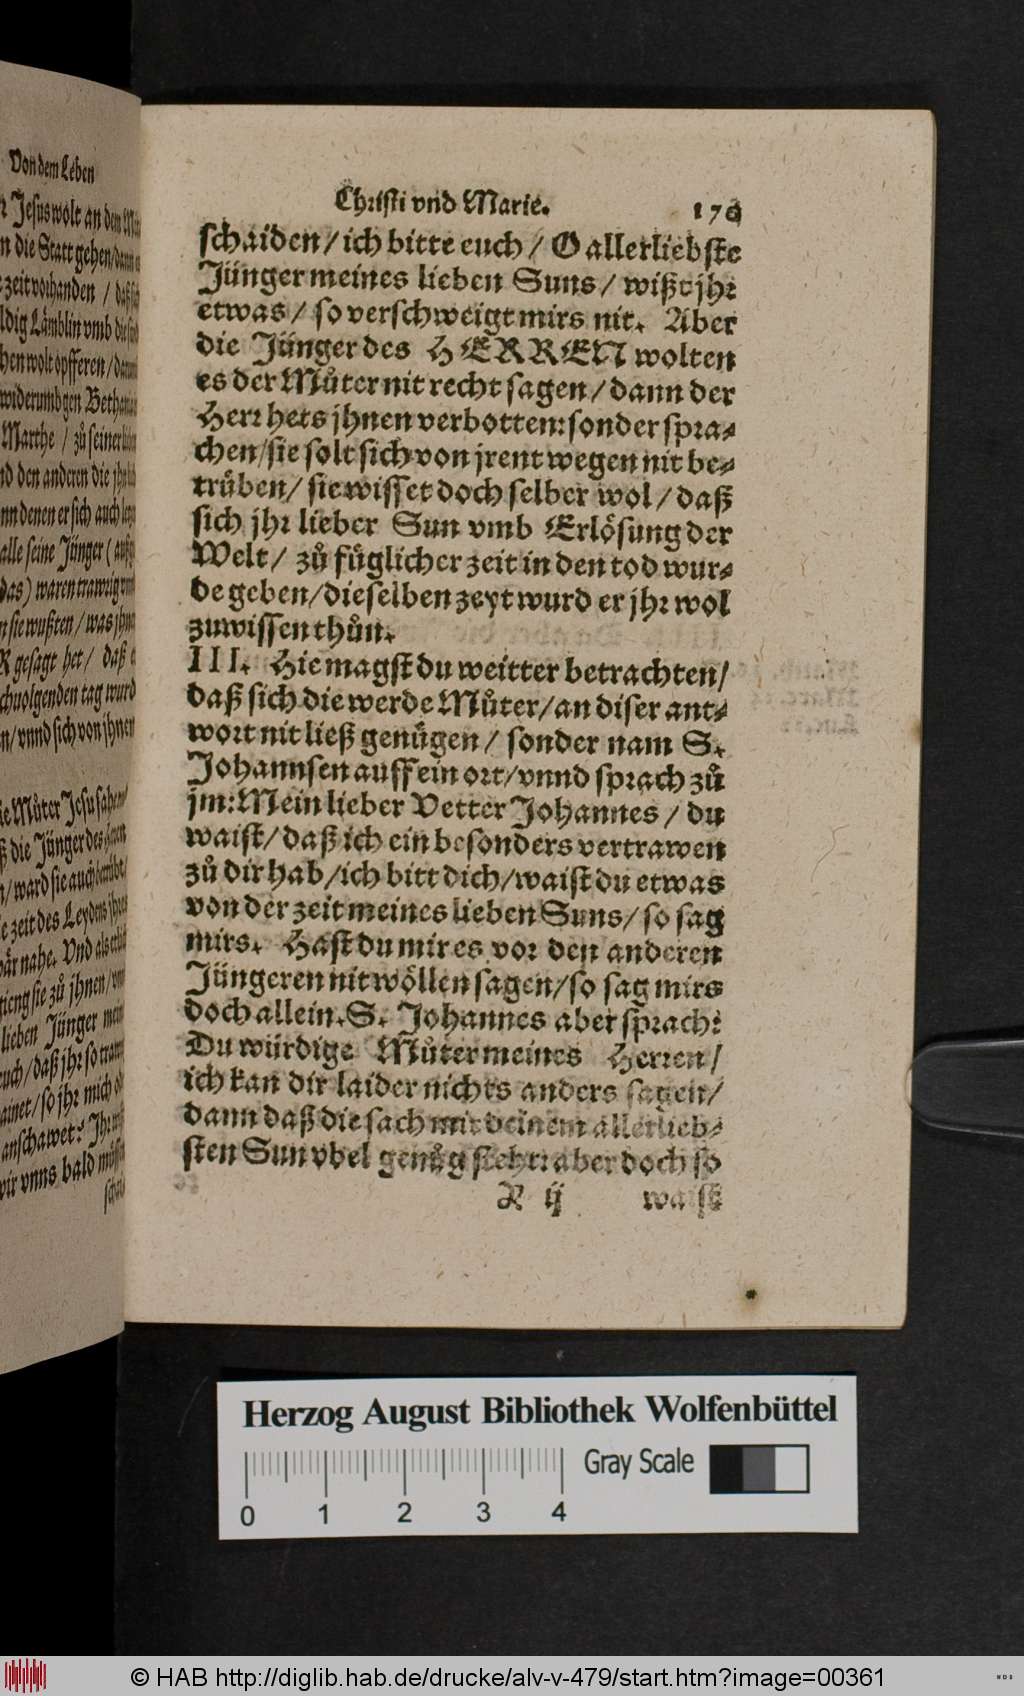 Von dem Leben
Jesus wolt an dem
die Statt gehen/
zeit vorhanden /
Lämblin vmb die
wolt opfferen/
widerumb gen
Marthe / zů seiner
den anderen die
denen er sich auch
alle seine Jünger (
waren trawrig
sie wußten / was
gesagt het/ daß
tag wurd
/ vnnd sich von jhnen
Můter Jesu sahe
die Jünger des
/ ward sie auch
zeit des Leydens
nahe. Vnd als
gieng sie zů jhnen/
lieben Jünger
/ daß jhr so
/ so jhr mich
anschawet?
vnns bald
Christi vnd Marie. 170
schaiden/ ich bitte euch/ O allerliebste
Jünger meines lieben Suns/ wißt jhr
etwas/ so verschweigt mirs nit. Aber
die Jünger des HERREN wolten
es der Můter nit recht sagen/ dann der
Herr hets jhnen verbotten: sonder spra-
chen/ sie solt sich von jrent wegen nit be-
trüben/ sie wisset doch selber wol/ daß
sich jhr lieber Sun vmb Erlösung der
Welt/ zů füglicher zeit in den tod wur-
de geben/ dieselben zeyt wurd er jhr wol
zuwissen thůn.
III. Hie magst du weitter betrachten/
daß sich die werde Můter/ an diser ant-
wort nit ließ genügen/ sonder nam S.
Johannsen auff ein ort/ vnnd sprach zů
jm: Mein lieber Vetter Johannes / du
waist/ daß ich ein besonders vertrawen
zů dir hab/ ich bitt dich/ waist du etwas
von der zeit meines lieben Suns/ so sag
mirs. Hast du mir es vor den anderen
Jüngeren nit wöllen sagen/ so sag mirs
doch allein. S. Johannes aber sprach:
Du würdige Můter meines Herren/
ich kan dir laider nichts anders sagen/
dann daß die sach mit deinem allerlieb-
sten Sun vbel genůg steht: aber doch so
R ij waist
Herzog August Bibliothek Wolfenbüttel
Gray Scale
0 1 2 3 4
© HAB http://diglib.hab.de/drucke/alv-v-479/start.htm?image=00361